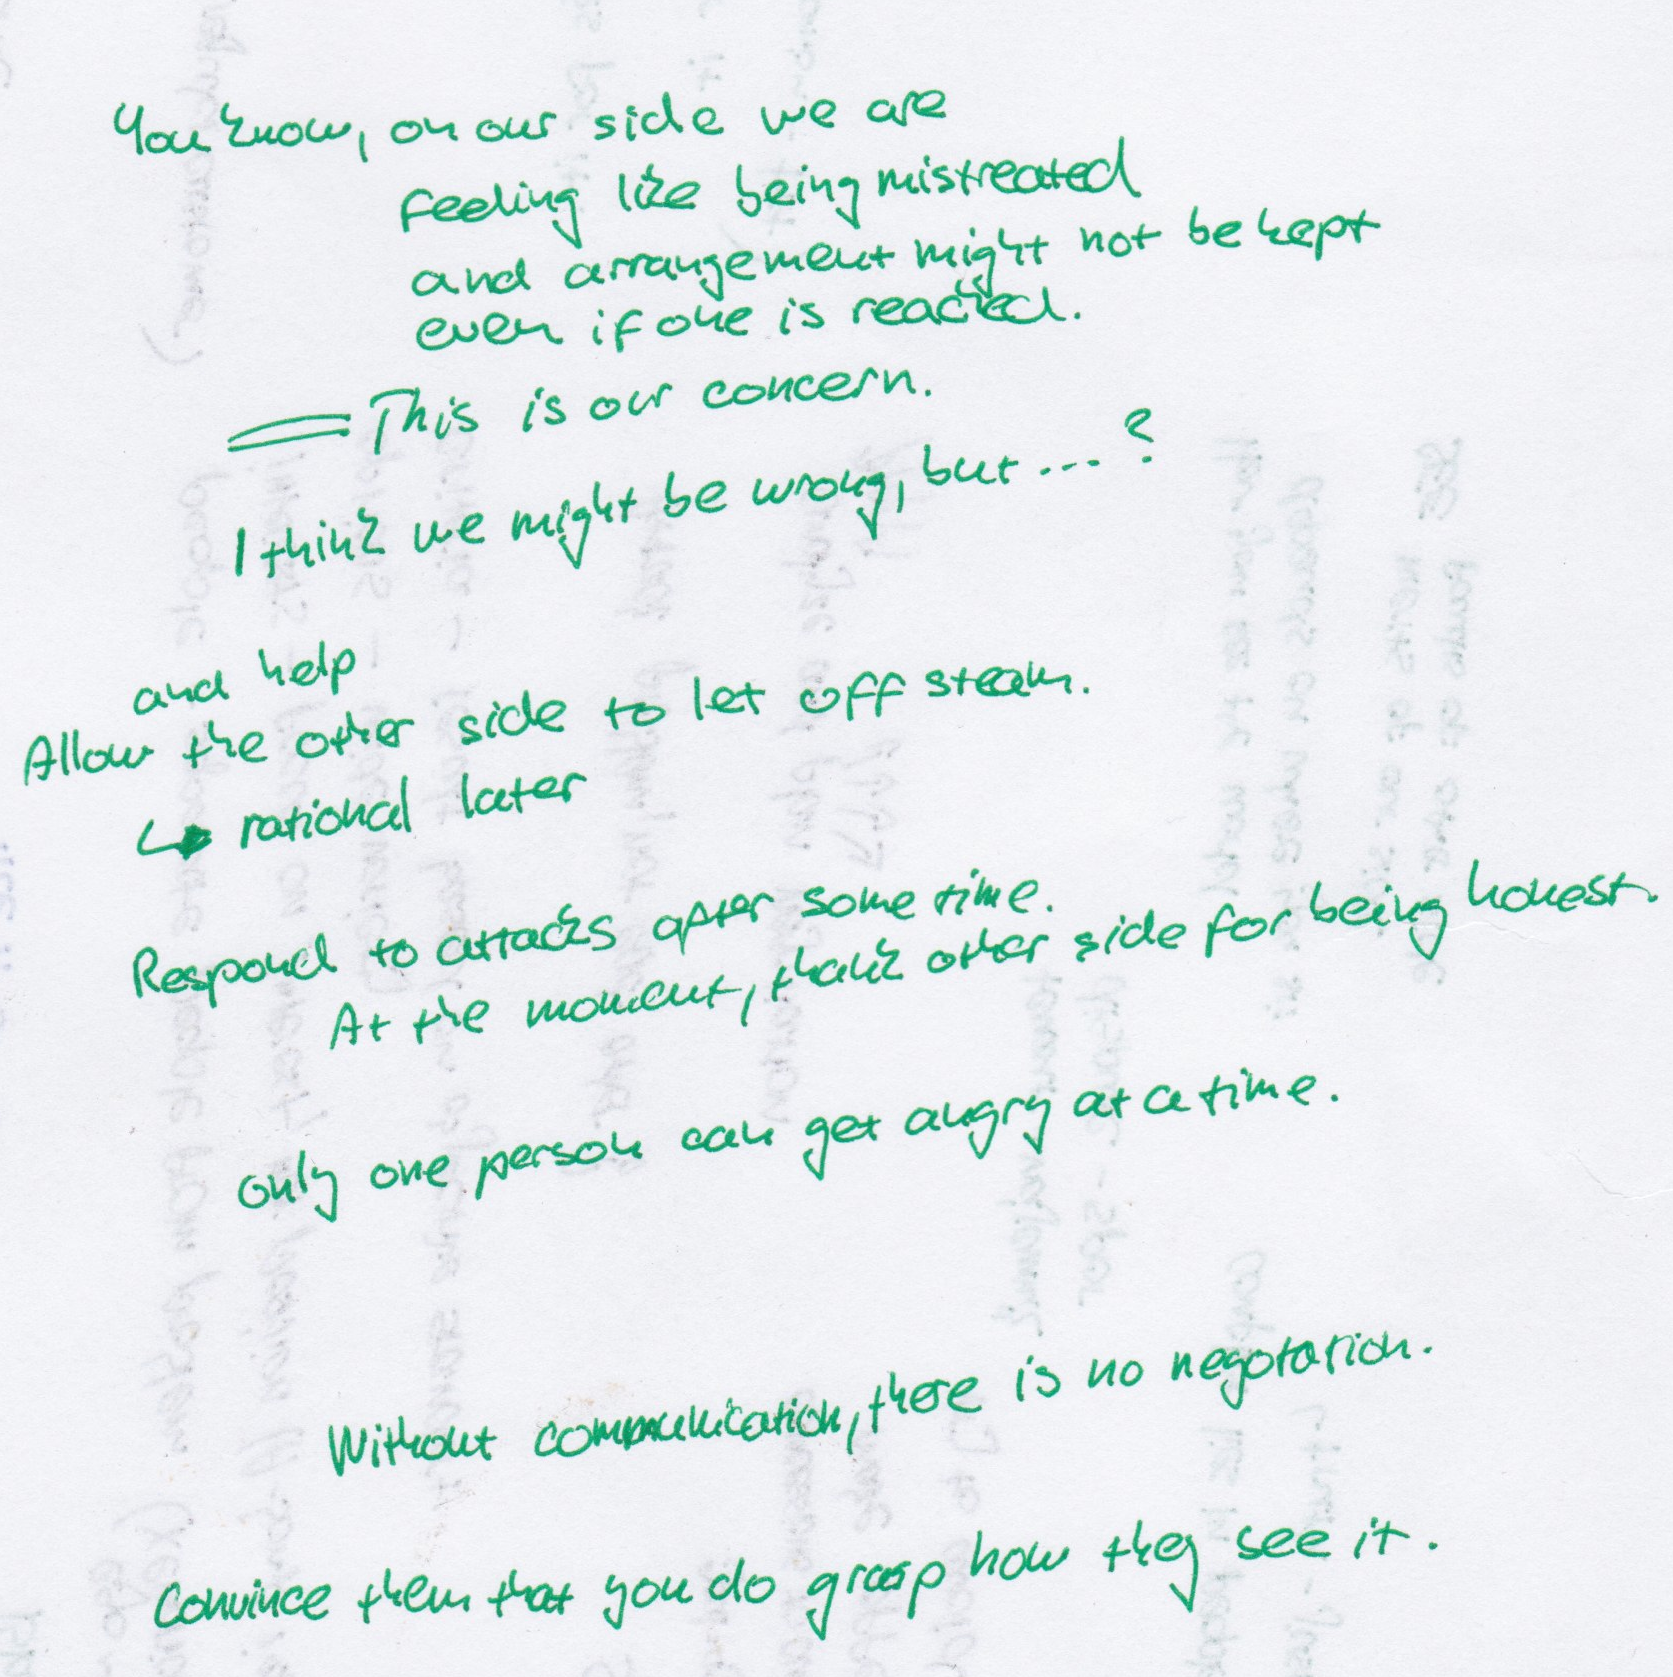 You know, on our side we are
feeling like being mistreated
and arrangement might not be kept
even if one is reached.
This is our concern.
I think we might be wrong, but .... ?
and help
Allow the other side to let off steam.
↳ rational later
Respond to attacks after some time.
At the moment, thank other side for being honest.
only one person can get angry at a time.
Without communication, there is no negotation.
Convince them that you do grasp how they see it.